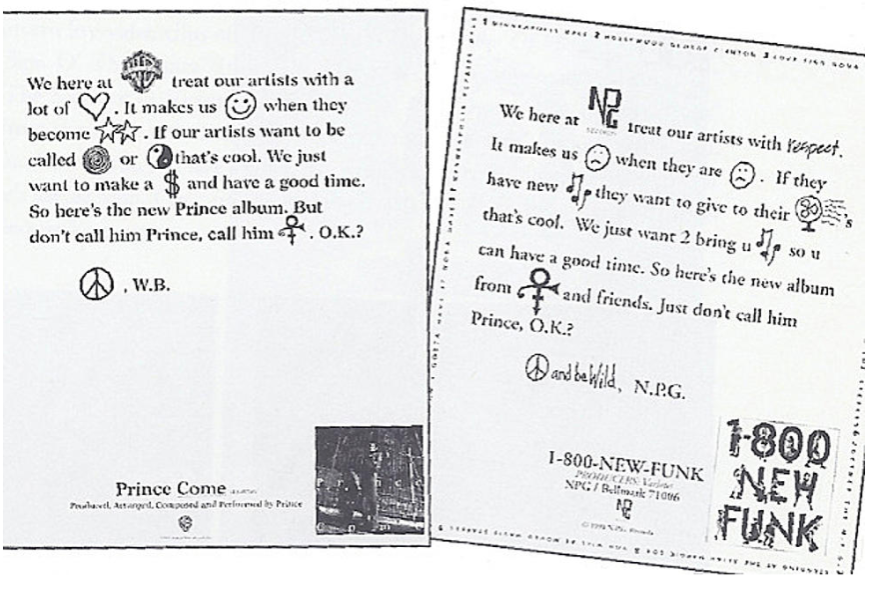 We here at treat our artists with a
lot of . It makes us when they
become . If our artists want to be
called or that's cool. We just
want to make a $ and have a good time.
So here's the new Prince album. But
don't call him Prince, call him . O.K.?
, W.B.
Prince Come
Produced, Arranged, Composed and Performed by Prince
We here at NPG treat our artists with respect.
It makes us when they are . If they
have new they want to give to their 's
that's cool. We just want 2 bring u so u
can have a good time. So here's the new album
from and friends. Just don't call him
Prince, O.K.?
and be Wild, N.P.G.
1-800-NEW-FUNK
PRODUCERS: Various
NPG / Bellmark 71006
NPG
1-800
NEW
FUNK